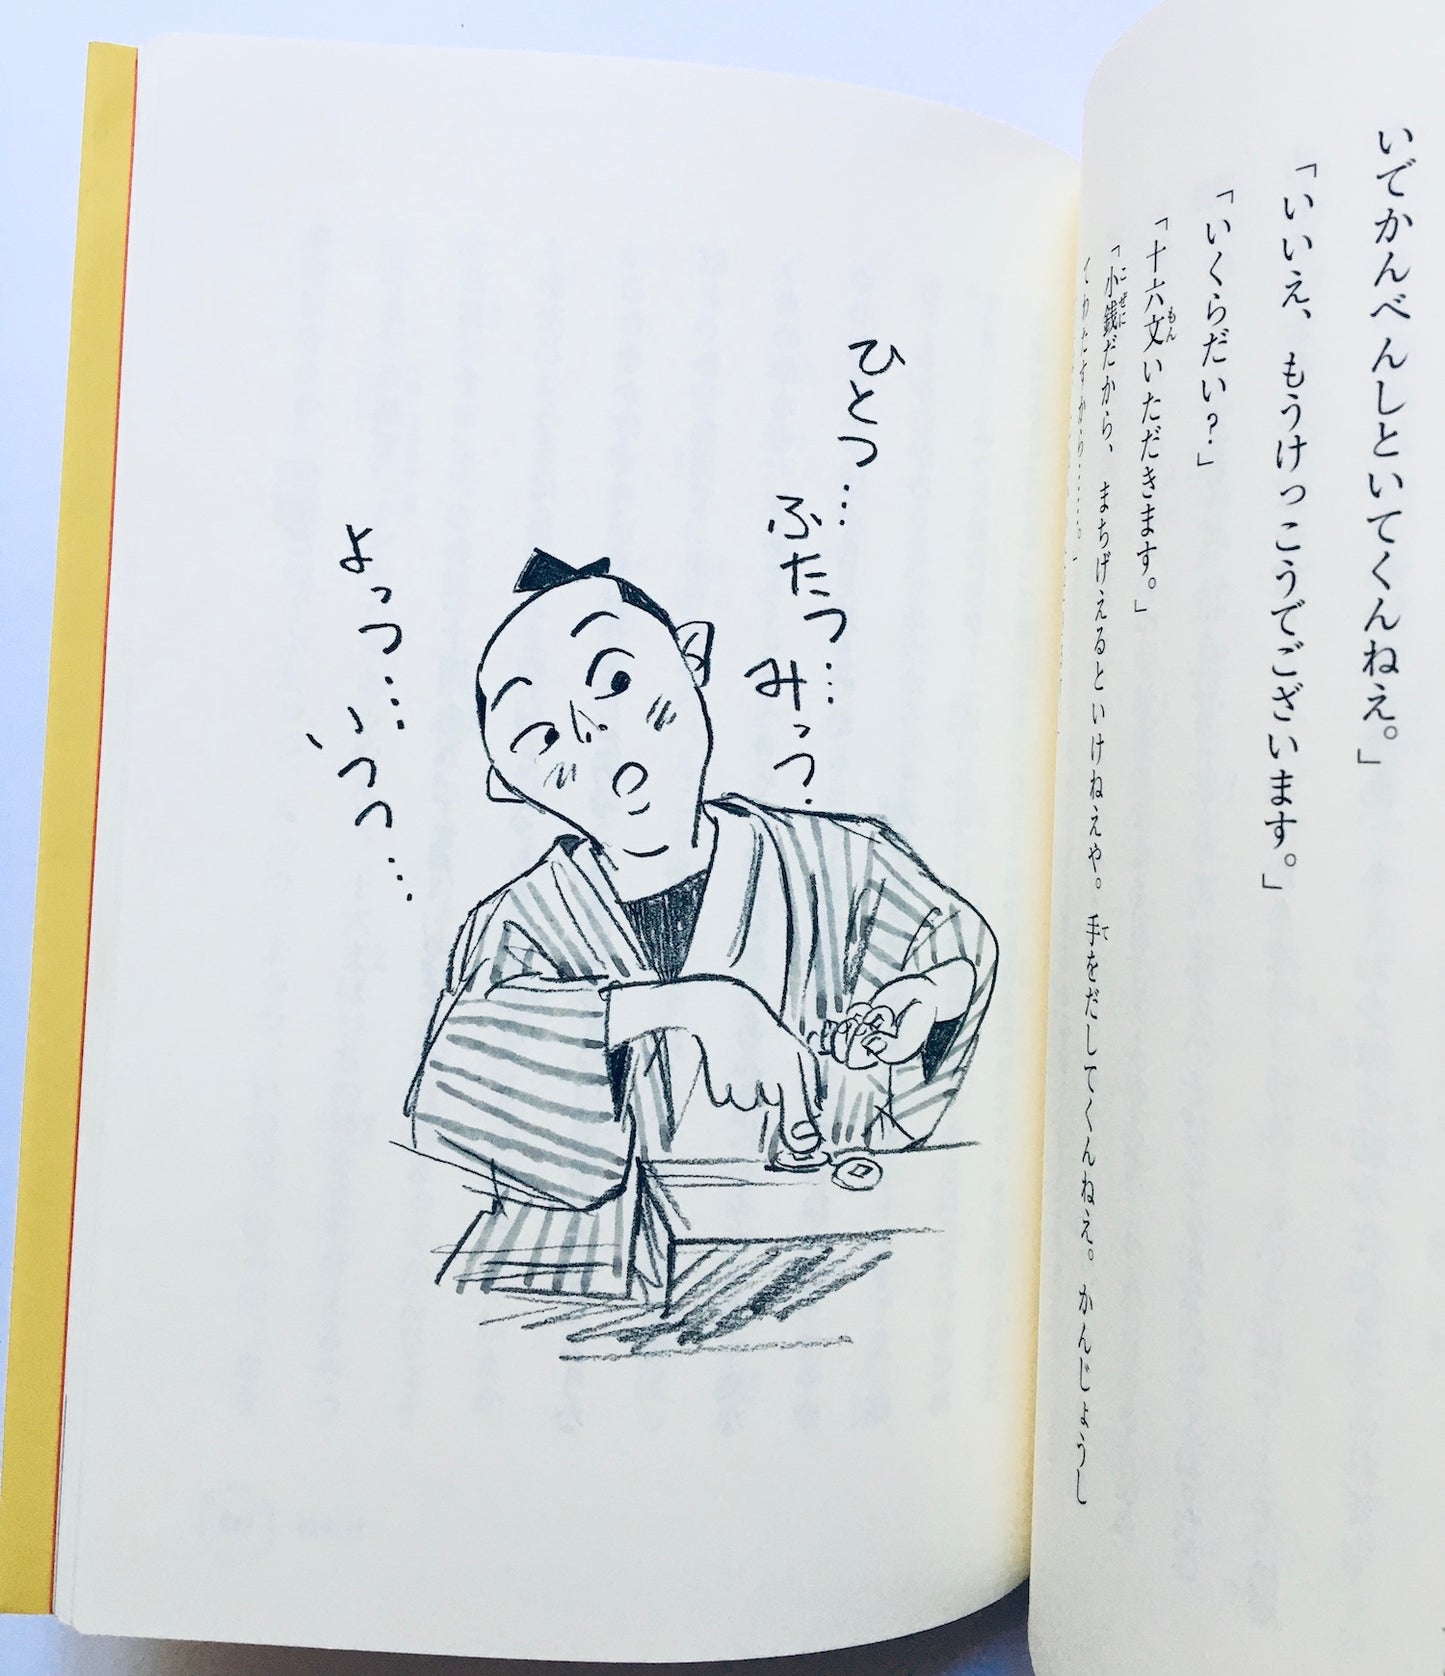 いでかんべんしといてくんねえ。」
「いいえ、もうけっこうでございます。」
「いくらだい?」
「十六文いただきます。」
「小銭だから、まちげえるといけねえや。手をだしてくんねえ。かんじょうし
てわたすから……。」
ひとつ…
ふたつ…
みっつ…
よっつ…
いつつ…